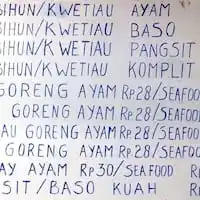 BIHUN/KWETIAU AYAM
BIHUN/KWETIAU BASO
BIHUN/KWETIAU PANGSIT
BIHUN/KWETIAU KOMPLIT
GORENG AYAM Rp.28/SEAFOO
GORENG AYAM Rp.28/SEAFO
AU GORENG AYAM Rp.28/SEAFO
GORENG AYAM Rp.28/SEAFO
AY AYAM Rp30/SEAFOOD Rp
SIT/BASO KUAH R